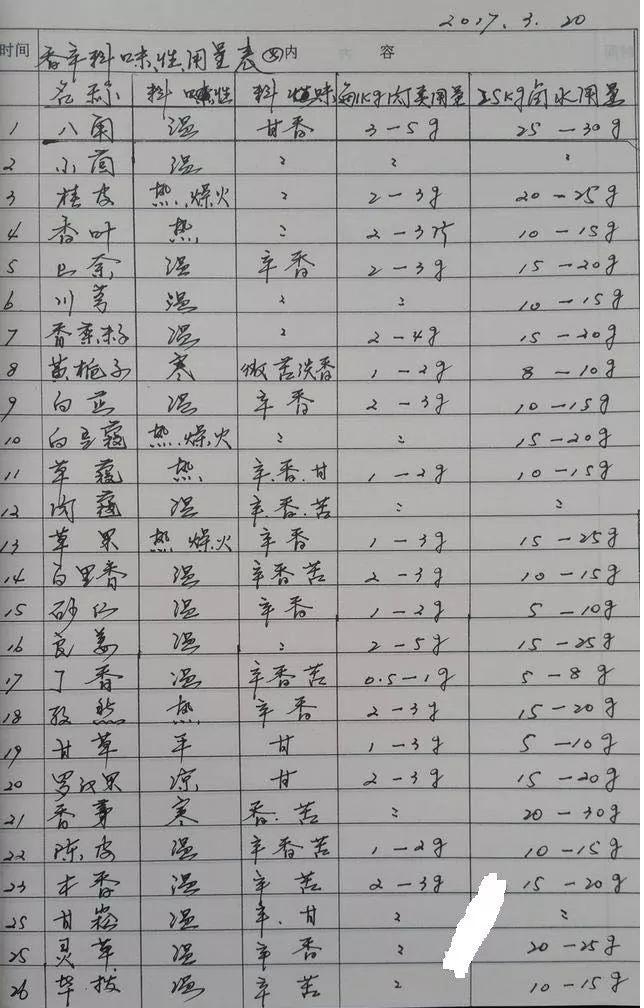 2017.3.20
时间 香辛料味性用量表(四) 内 容
名称 料味性 料性味 每1Kg肉类用量 25Kg卤水用量
1 八角 温 甘香 3-5g 25-30g
2 小茴 温 〃 〃 〃
3 桂皮 热.燥火 〃 2-3g 20-25g
4 香叶 热 〃 2-3片 10-15g
5 山奈 温 辛香 2-3g 15-20g
6 川芎 温 〃 〃 10-15g
7 香菜籽 温 〃 2-4g 15-20g
8 黄栀子 寒 微苦淡香 1-2g 8-10g
9 白芷 温 辛香 2-3g 10-15g
10 白豆蔻 热.燥火 〃 〃 15-20g
11 草蔻 热 辛.香.甘 1-2g 10-15g
12 肉蔻 温 辛香.苦 〃 〃
13 草果 热 燥火 辛香 1-3g 15-25g
14 百里香 温 辛香苦 2-3g 10-15g
15 砂仁 温 辛香 1-2g 5-10g
16 良姜 温 〃 2-5g 15-25g
17 丁香 温 辛香苦 0.5-1g 5-8g
18 孜然 热 辛香 2-3g 15-20g
19 甘草 平 甘 1-3g 5-10g
20 罗汉果 凉 甘 2-3g 15-20g
21 香茅 寒 香.苦 〃 20-30g
22 陈皮 温 辛香苦 1-2g 10-15g
23 木香 温 辛苦 2-3g 15-20g
25 甘崧 温 辛.甘 〃 〃
25 灵草 温 辛香 〃 20-25g
26 毕拔 温 辛苦 〃 10-15g